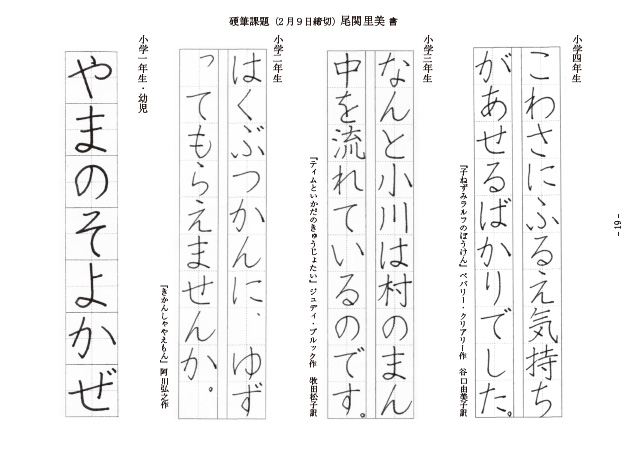 硬筆課題（2月9日締切）尾関里美 書
小学四年生
こわさにふるえ気持ち
があせるばかりでした。
『子ねずみラルフのぼうけん』ベバリー・クリアリー作 谷口由美子訳
小学三年生
なんと小川は村のまん
中を流れているのです。
『ティムといかだのきゅうじょたい』ジュディ・ブルック作 牧田松子訳
小学二年生
はくぶつかんに、ゆず
ってもらえませんか。
『きかんしゃやえもん』阿川弘之作
小学一年生・幼児
やまのそよかぜ
- 19 -